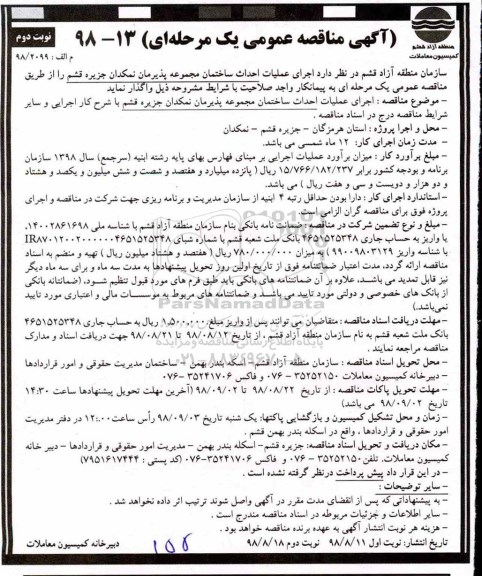 (آگهی مناقصه عمومی یک مرحله‌ای) ۱۳- ۹۸
نوبت دوم
منطقه آزاد قشم
کمیسیون معاملات
م الف : ۹۸/۲۰۹۹
سازمان منطقه آزاد قشم در نظر دارد اجرای عملیات احداث ساختمان مجموعه پذیرمان نمکدان جزیره قشم را از طریق
مناقصه عمومی یک مرحله ای به پیمانکار واجد صلاحیت با شرایط مشروحه ذیل واگذار نماید
- موضوع مناقصه : اجرای عملیات احداث ساختمان مجموعه پذیرمان نمکدان جزیره قشم با شرح کار اجرایی و سایر
شرایط مناقصه درج در اسناد مناقصه .
- محل و اجرا پروژه : استان هرمزگان - جزیره قشم - نمکدان
- مدت زمان اجرای کار: ۱۲ ماه شمسی می باشد.
- مبلغ برآورد کار : میزان برآورد عملیات اجرایی بر مبنای فهارس بهای پایه رشته ابنیه (سرجمع) سال ۱۳۹۸ سازمان
برنامه و بودجه کشور برابر ۱۵/۷۶۶/۱۸۲/۲۳۷ ریال ( پانزده میلیارد و هفتصد و شصت و شش میلیون و یکصد و هشتاد
و دو هزار و دویست و سی و هفت ریال ) می باشد.
- استاندارد اجرای کار : دارا بودن حداقل رتبه ۲ ابنیه از سازمان مدیریت و برنامه ریزی جهت شرکت در مناقصه و اجرای
پروژه فوق برای مناقصه گران الزامی است.
- مبلغ و نوع تضمین شرکت در مناقصه : ضمانت نامه بانکی بنام سازمان منطقه آزاد قشم با شناسه ملی ۱۴۰۰۲۸۶۱۶۹۸،
یا واریز به حساب جاری ۴۶۵۱۵۲۵۳۴۸ بانک ملت شعبه قشم با شماره شبای
با شناسه واریز به میزان ۷۸۰/۰۰۰/۰۰۰ ریال ( هفتصد و هشتاد میلیون ریال ) تهیه و منضم به اسناد
مناقصه ارائه گردد، مدت اعتبار ضمانتنامه فوق از تاریخ اولین روز تحویل پیشنهادها به مدت سه ماه و برای سه ماه دیگر
نیز قابل تمدید می باشد، علاوه بر آن ضمانتنامه های بانکی باید طبق فرم های مورد قبول تنظیم شود، (ضمانتانه بانکی
از بانک های خصوصی و دولتی مورد تایید می باشد و ضمانتنامه های مربوط به موسسات مالی و اعتباری مورد تایید
نمی‌باشد)
- مهلت دریافت اسناد مناقصه : متقاضیان می توانند پس از واریز مبلغ ۱,۵۰۰,۰۰۰ ریال به حساب جاری ۴۶۵۱۵۲۵۳۴۸
بانک ملت شعبه قشم به نام سازمان منطقه آزاد قشم ، از تاریخ ۹۸/۰۸/۱۲ تا ۹۸/۰۸/۲۱ جهت دریافت اسناد و مدارک
مناقصه مراجعه نمایند .
- محل تحویل اسناد مناقصه : سازمان منطقه آزاد قشم- اسکله بندر بهمن - ساختمان مدیریت حقوقی و امور قراردادها
- دبیرخانه کمیسیون معاملات ۳۵۲۵۲۱۵۰ - ۰۷۶ و فاکس ۳۵۲۴۱۷۰۶ -۰۷۶
- مهلت تحویل پاکات مناقصه : از تاریخ ۹۸/۰۸/۲۲ تا ۹۸/۰۹/۰۲ (آخرین مهلت تحویل پیشنهادها ساعت ۱۴:۳۰
تاریخ ۹۸/۰۹/۰۲ می باشد)
- زمان و محل تشکیل کمیسیون و بازگشایی پاکتها: یک شنبه تاریخ ۹۸/۰۹/۰۳ رأس ساعت ۱۲:۰۰ در دفتر مدیریت
امور حقوقی و قراردادها ، واقع در اسکله بندر بهمن قشم .
- مکان دریافت و تحویل اسناد مناقصه: جزیره قشم- اسکله بندر بهمن - مدیریت امور حقوقی و قراردادها - دبیر خانه
کمیسیون معاملات. تلفن ۳۵۲۵۲۱۵۰ - ۰۷۶ و فاکس ۳۵۲۴۱۷۰۶-۰۷۶ (کد پستی : ۷۹۵۱۶۱۷۴۴۴)
- در این قرار داد پیش پرداخت درنظر گرفته نشده است .
- سایر توضیحات :
- به پیشنهاداتی که پس از انقضای مدت مقرر در آگهی واصل شوند ترتیب اثر داده نخواهد شد .
- سایر اطلاعات و جزئیات مربوطه در اسناد مناقصه مندرج است .
- هزینه هر نوبت انتشار آگهی به عهده برنده مناقصه خواهد بود .
تاریخ انتشار: نوبت اول ۹۸/۸/۱۱ نوبت دوم ۹۸/۸/۱۸
دبیرخانه کمیسیون معاملات